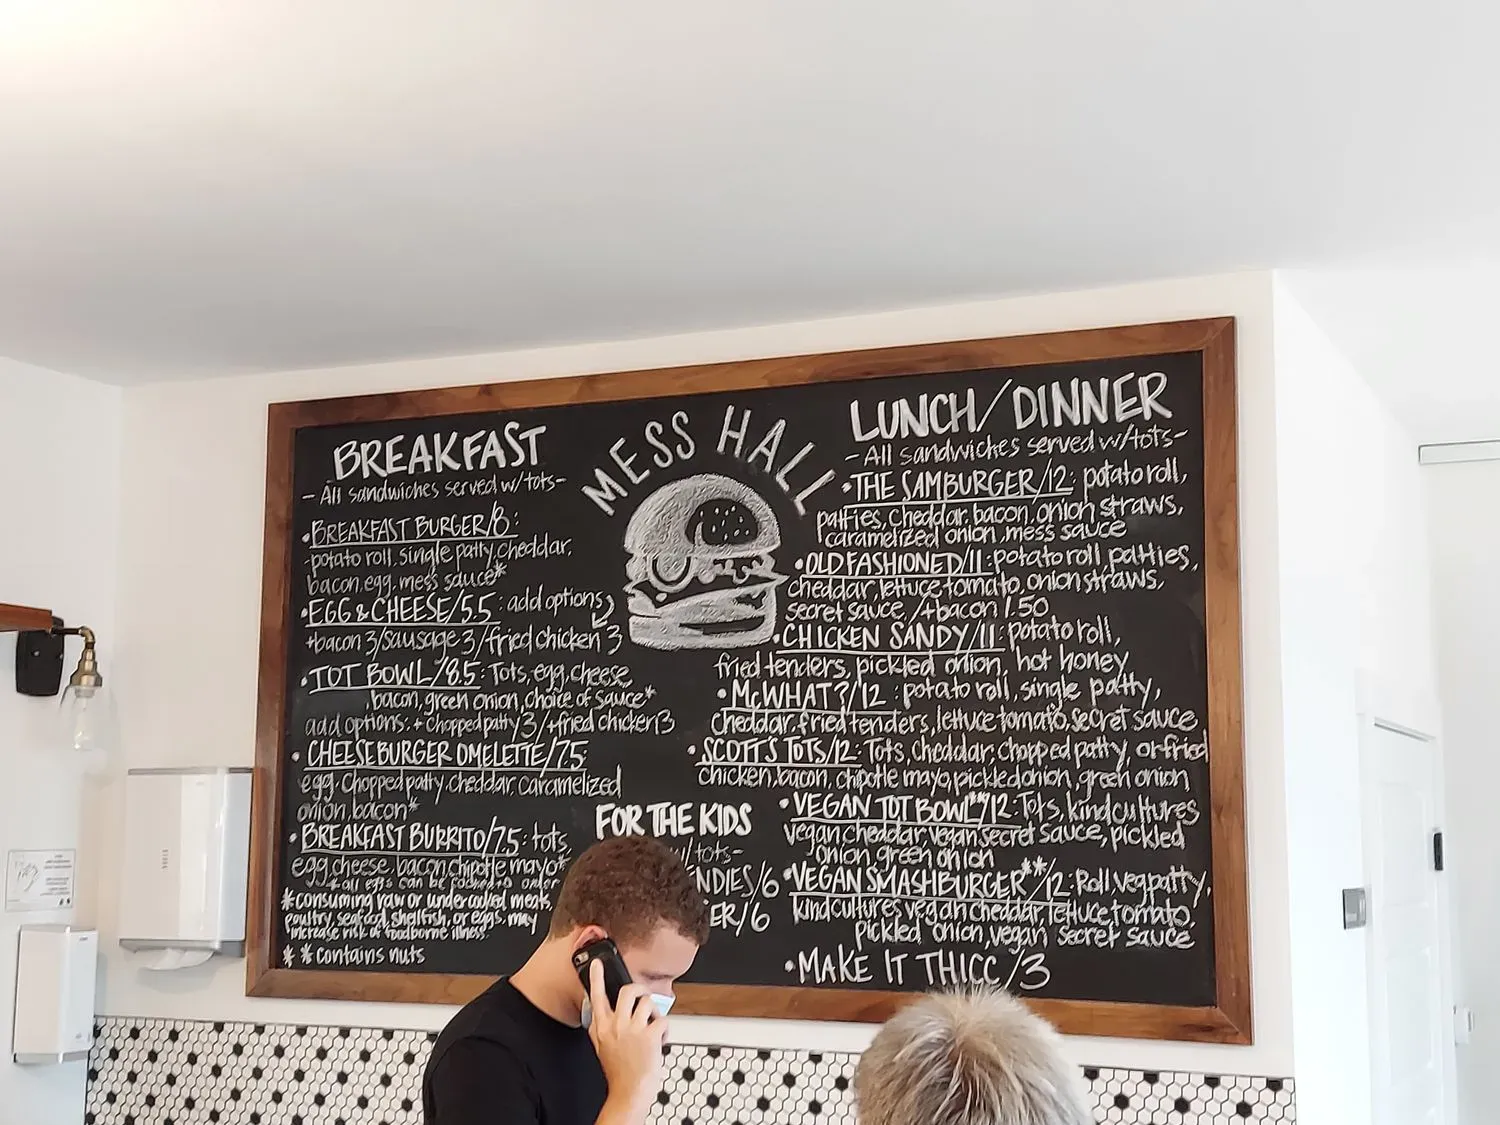 BREAKFAST
- All sandwiches served w/tots-
• BREAKFAST BURGER/8:
-potato roll, single patty, cheddar,
bacon, egg, mess sauce*
• EGG & CHEESE/5.5: add options
+bacon 3/sausage 3/fried chicken 3
• TOT BOWL/8.5: Tots, egg, cheese,
bacon, green onion, choice of sauce*
add options: + chopped patty 3/+fried chicken 3
• CHEESEBURGER OMELETTE/7.5
egg, chopped patty, cheddar, caramelized
onion, bacon*
• BREAKFAST BURRITO/7.5: tots,
egg, cheese, bacon, chipotle mayo*
*all eggs can be cooked to order
*consuming raw or undercooked meats,
poultry, seafood, shellfish, or eggs, may
increase risk of foodborne illness.
** contains nuts
MESS HALL
FOR THE KIDS
w/tots-
NDIES/6
ER/6
LUNCH/DINNER
- All sandwiches served w/tots-
• THE SAMBURGER/12: potato roll,
patties, cheddar, bacon, onion straws,
caramelized onion, mess sauce
• OLD FASHIONED/11: potato roll, patties,
cheddar, lettuce, tomato, onion straws,
secret sauce, /+bacon 1.50
• CHICKEN SANDY/11: potato roll,
fried tenders, pickled onion, hot honey
• McWHAT?/12: potato roll, single patty,
cheddar, fried tenders, lettuce, tomato, secret sauce
• SCOTT'S TOTS/12: Tots, cheddar, chopped patty, or fried
chicken, bacon, chipotle mayo, pickled onion, green onion
• VEGAN TOT BOWL**/12: Tots, kind cultures
vegan cheddar, vegan secret sauce, pickled
onion, green onion
• VEGAN SMASHBURGER**/12: Roll, veg patty,
kind cultures, vegan cheddar, lettuce, tomato,
pickled onion, vegan secret sauce
• MAKE IT THICC/3